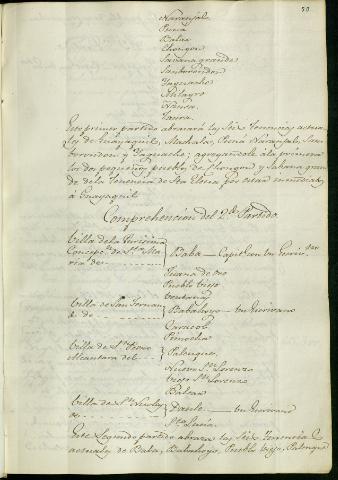 50
Naranjal
Puná
Balao
Chongon
Savana grande
Samborondon
Yaguache
Milagro
Nausa
Taura
Este primer partido abrazará las seis Tenencias actua
les de Guayaquil, Machala, Puná, Naranjal, Sam
borondon y Yaguache; agregandole á la primera
los dos pequeños pueblos de Chongon y Sabana gran
de de la Tenencia de Sta Elena por estar inmediatos
á Guayaquil
Comprehención del 2º Partido
Villa de la Purisima
Concepcn de Sta Ma
ria de
Baba — Capital con un Escrivano
Juana de oro
Pueblo viejo
Ventanas
Villa de San Fernan
do de
Babahoyo — un Escrivano
Caracol
Pimocha
Villa de Sn Pedro
Alcantara del
Palenque
Nuevo Sn Lorenzo
viejo Sn Lorenzo
Balzar
Villa de Sta
de
Daule — un Escrivano
Sta Lucia
Este Segundo partido abraza las seis Tenencias
actuales de Baba, Babahoyo, Pueblo viejo, Palenque